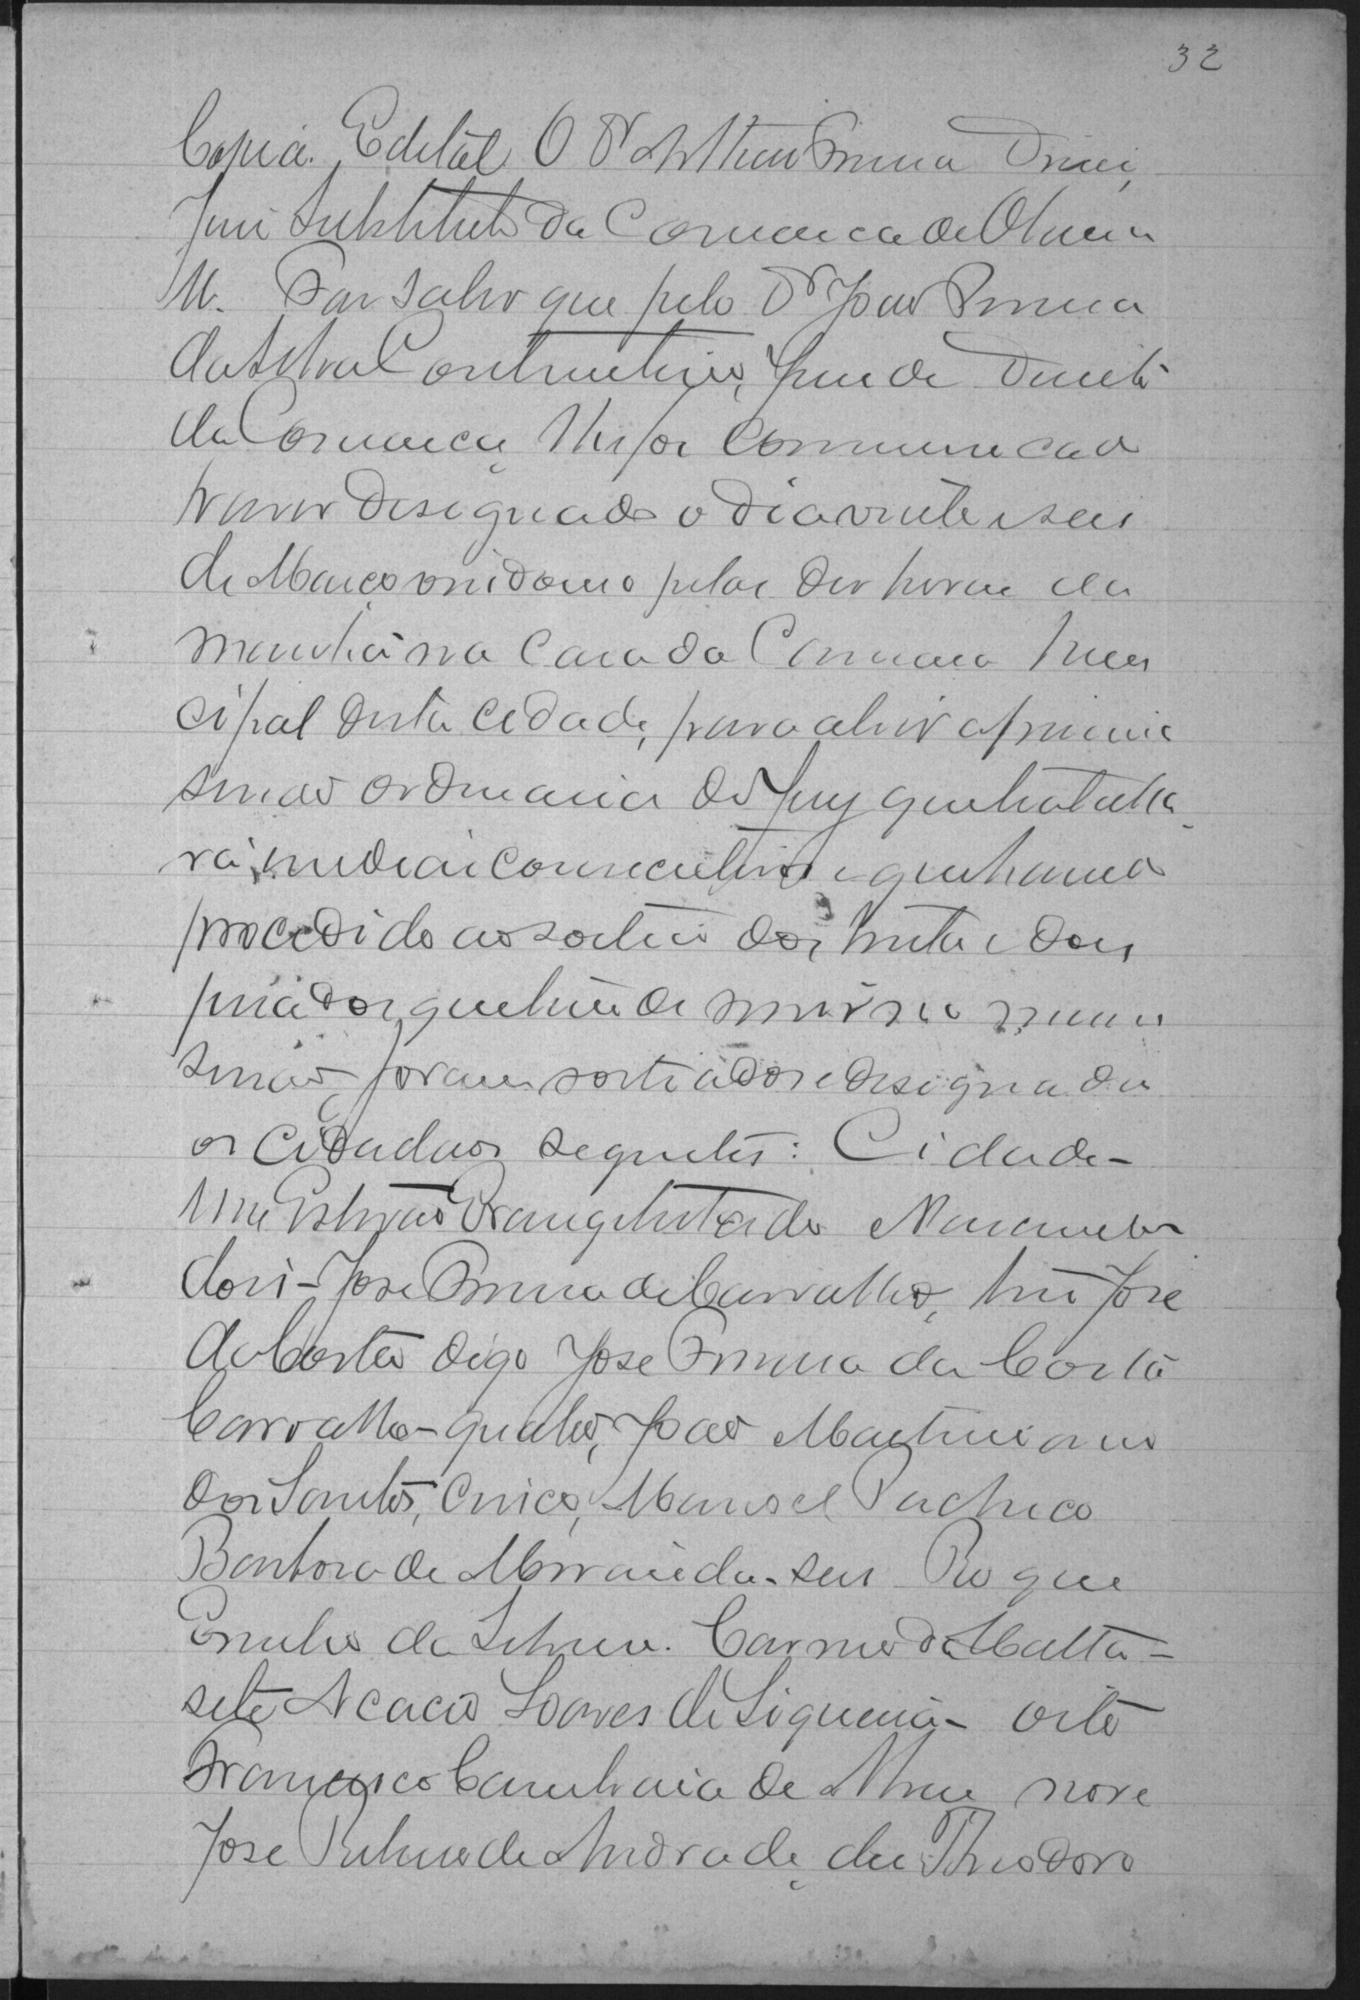 32
Copia. Edital O Dr Arthur Pereira Diniz,
Juiz Substituto da Comarca de Olinda
Vª. Faz saber que pelo Dr João Pereira
da Silva Constructino, Juiz de Direito
da Comarca, lhe foi communicado
haver designado o dia vinte e seis
de Março vindouro pelas dez horas da
manhã na Casa da Camara Muni
cipal desta cidade, para abrir a primeira
sessão ordinaria do Jury que trabalha
rá em dias consecutivos e que havendo
procedido ao sorteio dos trinta e dous
jurados que hão de servir na mesma
sessão, foram sorteados e designados
os cidadãos seguintes: Cidade -
Um Estevão Evangelista do Nascimento
dois - Jose Pereira de Carvalho, trez Jose
da Costa digo Jose Pereira da Costa
Carvalho - quatro, João Martiniano
dos Santos, cinco, Manoel Pacheco
Barbosa de Miranda - seis Roque
Emilio da Silveira Carneiro da Matta -
sete Acacio Soares de Siqueira - oito
Francisco Cambraia de Abreu nove
Jose Ribeiro de Andrade, dez Theodoro